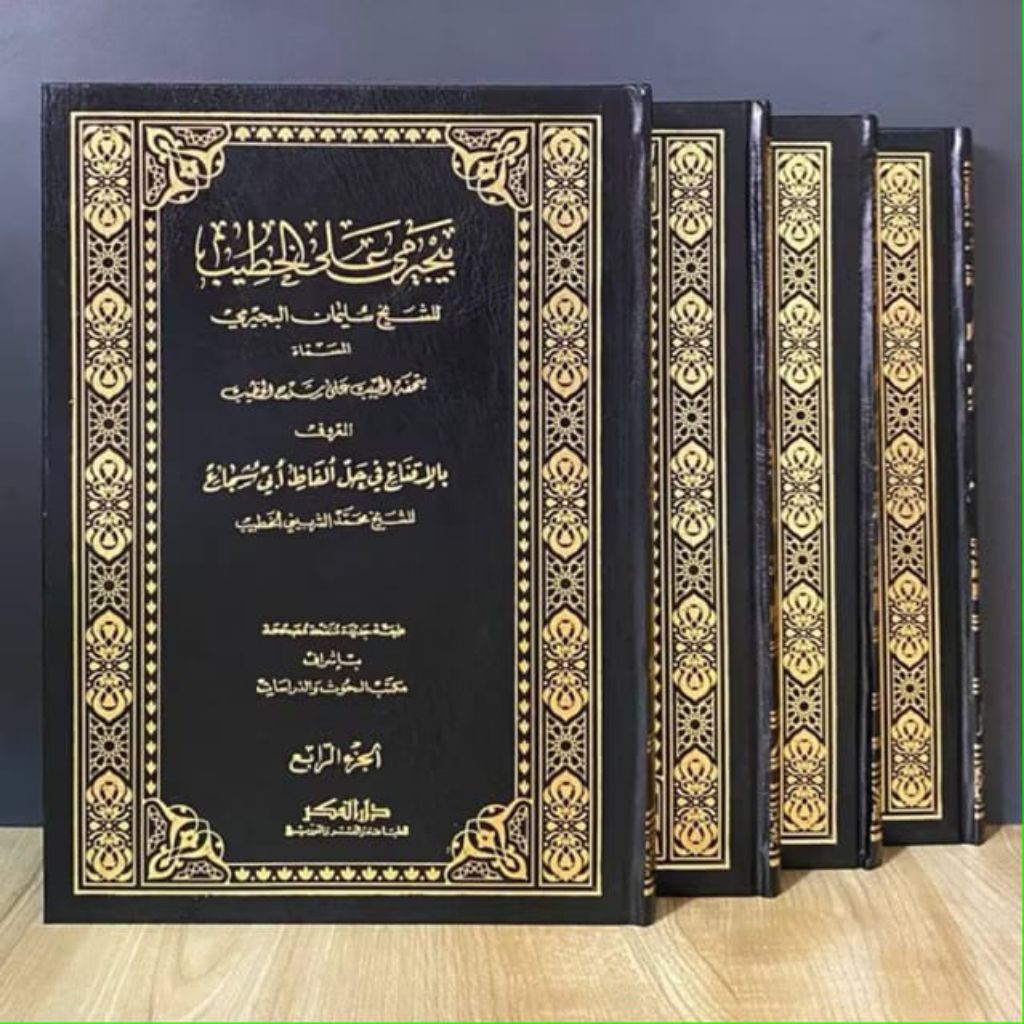 بيجيرمي على الخطيب
للشيخ سليمان البجيرمي
المسماة
بتحفة الحبيب على شرح الخطيب
المعروف
بالإقناع في حل ألفاظ أبي شجاع
للشيخ محمد الشربيني الخطيب
طبعة جديدة منقحة مصححة
بإشراف
مكتب البحوث والدراسات
الجزء الرابع
دار الفكر
للطباعة والنشر والتوزيع